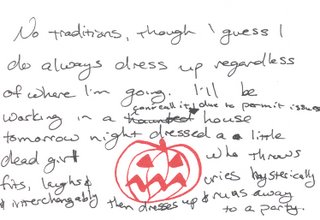 No traditions, though I guess I
do always dress up regardless
of where I'm going. I'll be
working in a haunted house
(can't call it due to permit issues
tomorrow night dressed a little
dead girl who throws
fits, laughs & cries hysterically
& interchangably then dresses up & runs away
to a party.